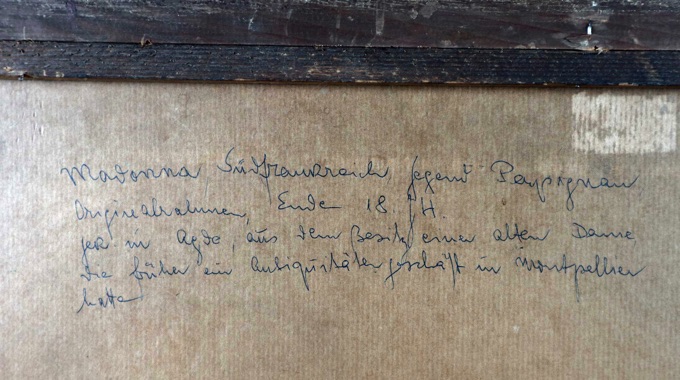 Madonna, Südfrankreich, Gegend Perpignan.
Originalrahmen, Ende 18. JH.
in Agde, aus dem Besitz einer alten Dame
die früher ein Antiquitätengeschäft in Montpellier
hatte